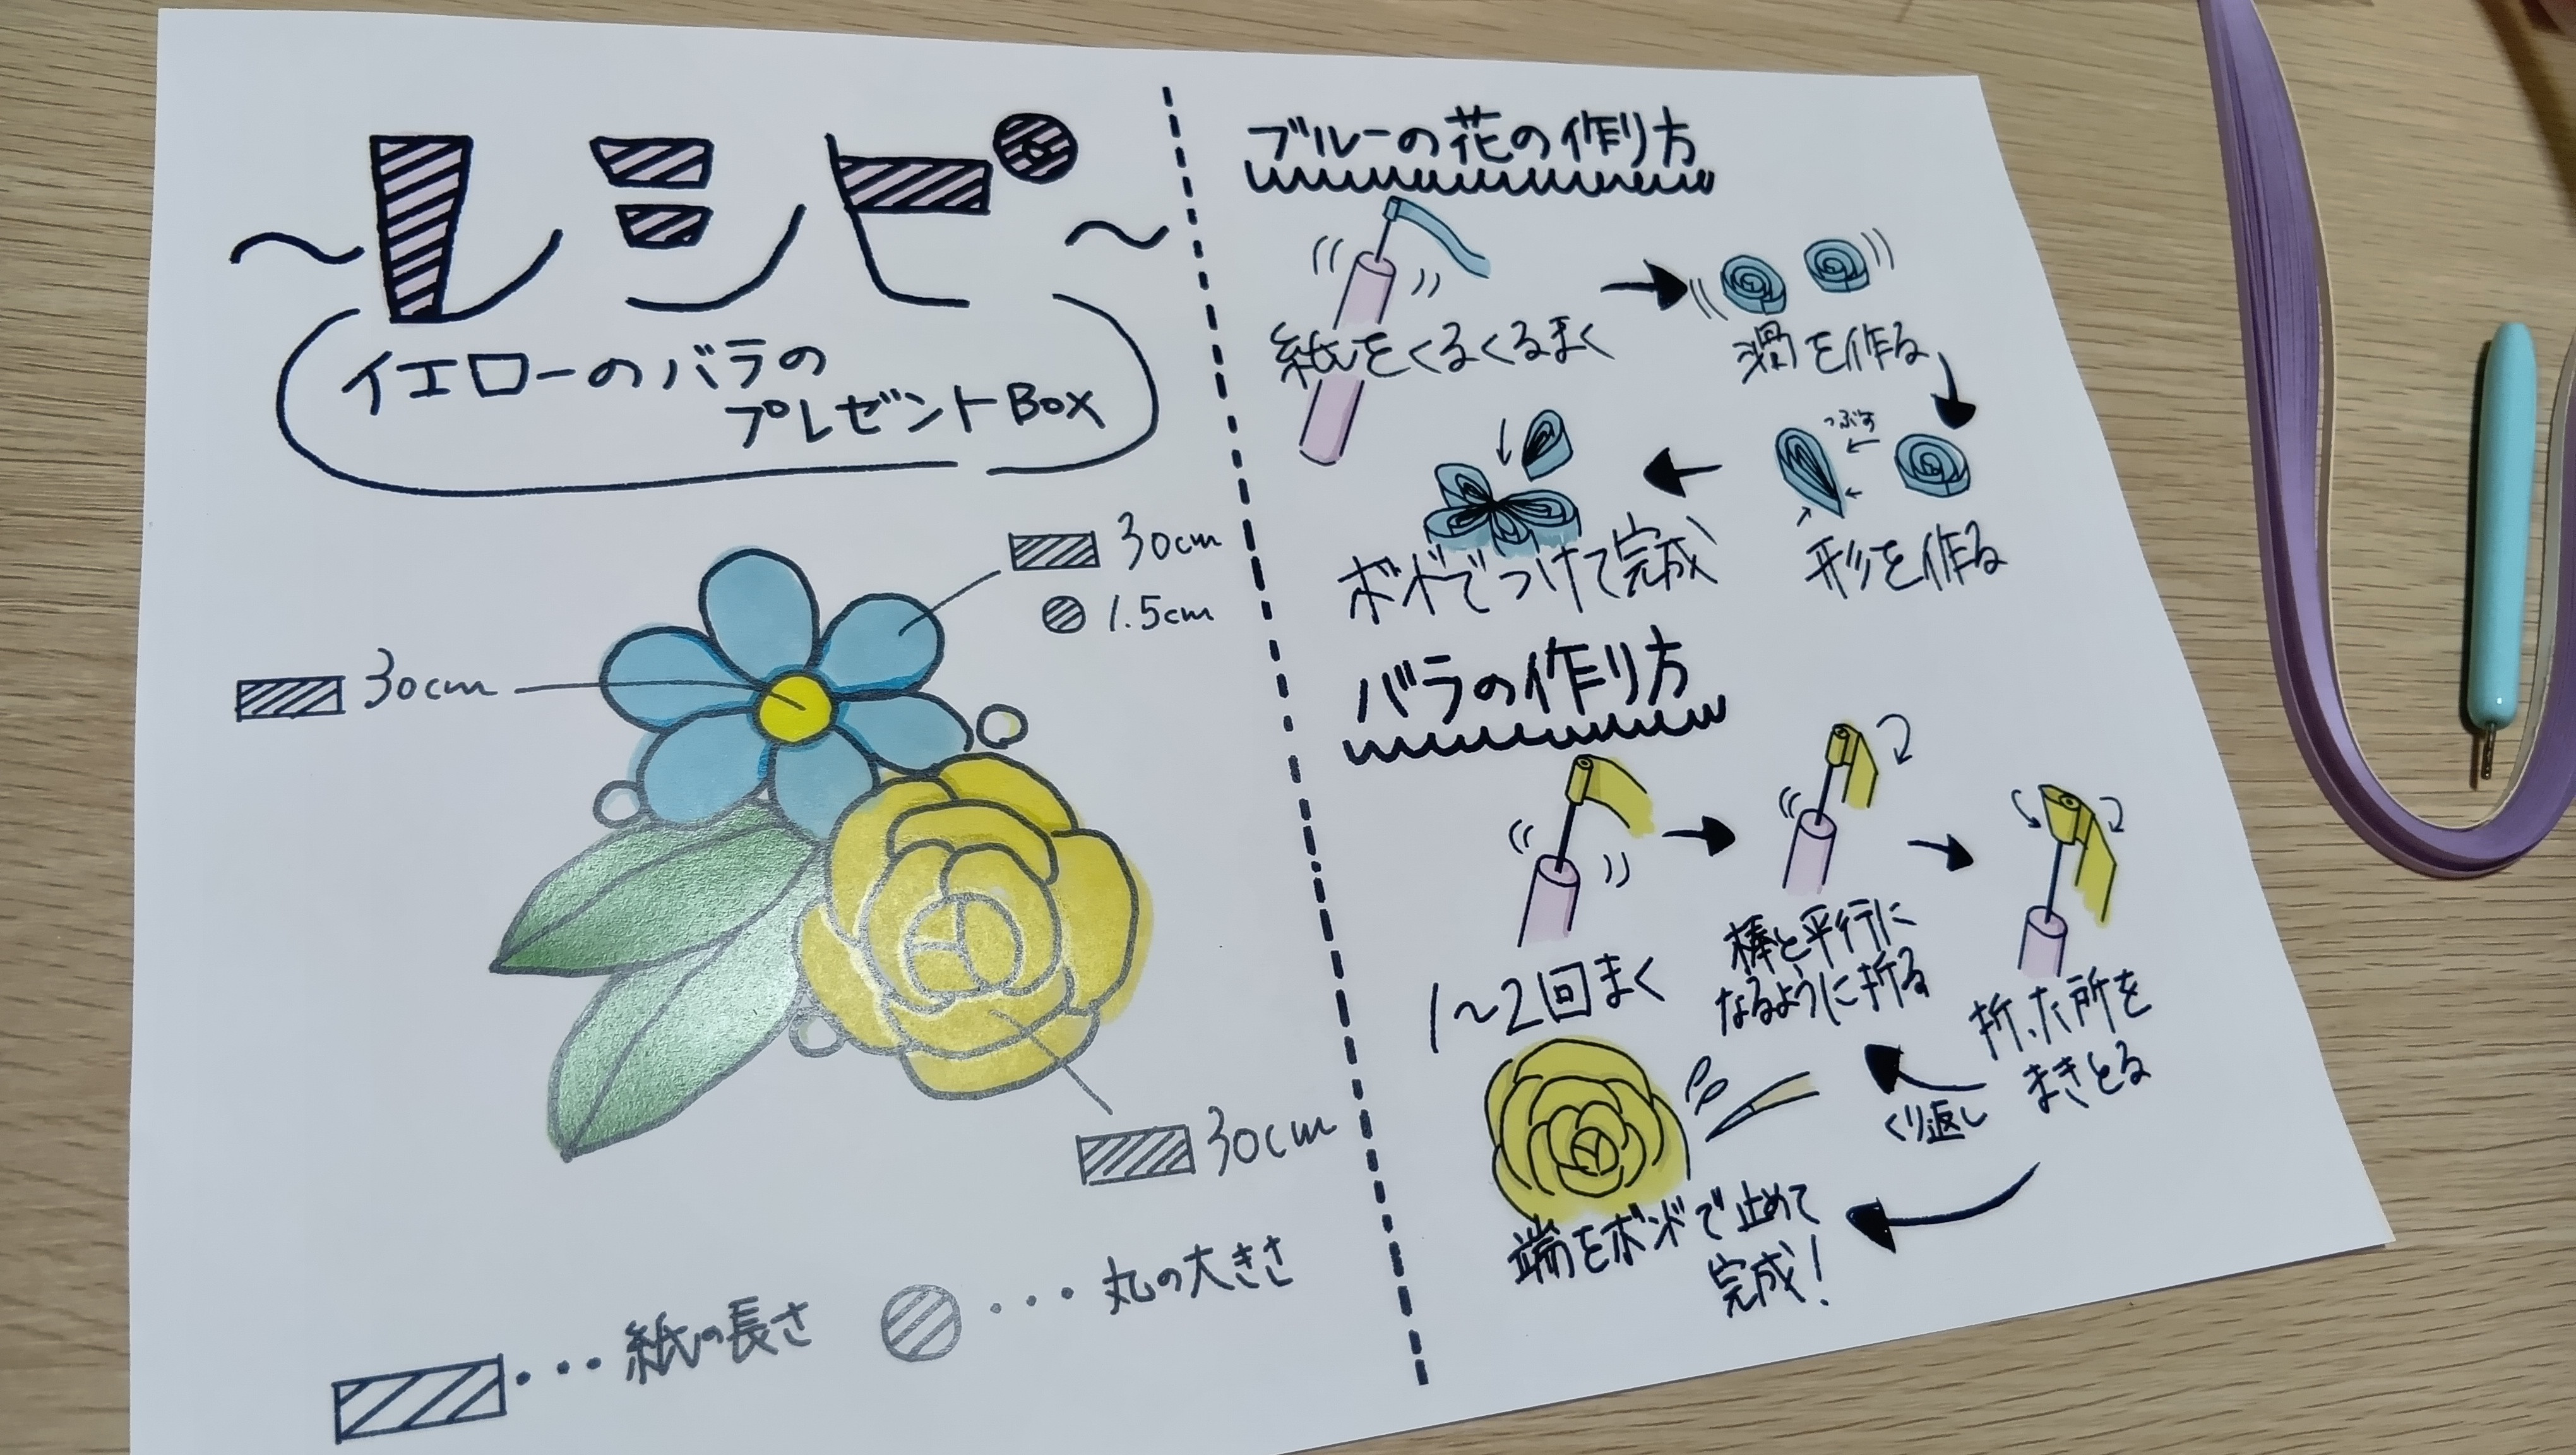 ～レシピ～
イエローのバラの
プレゼントBOX
30cm
1.5cm
30cm
30cm
・・・紙の長さ
・・・丸の大きさ
ブルーの花の作り方
紙をくるくるまく
渦を作る
つぶす
形を作る
ボンドでつけて完成
バラの作り方
1～2回まく
棒と平行に
なるように折る
折った所を
まきとる
くり返し
端をボンドで止めて
完成！